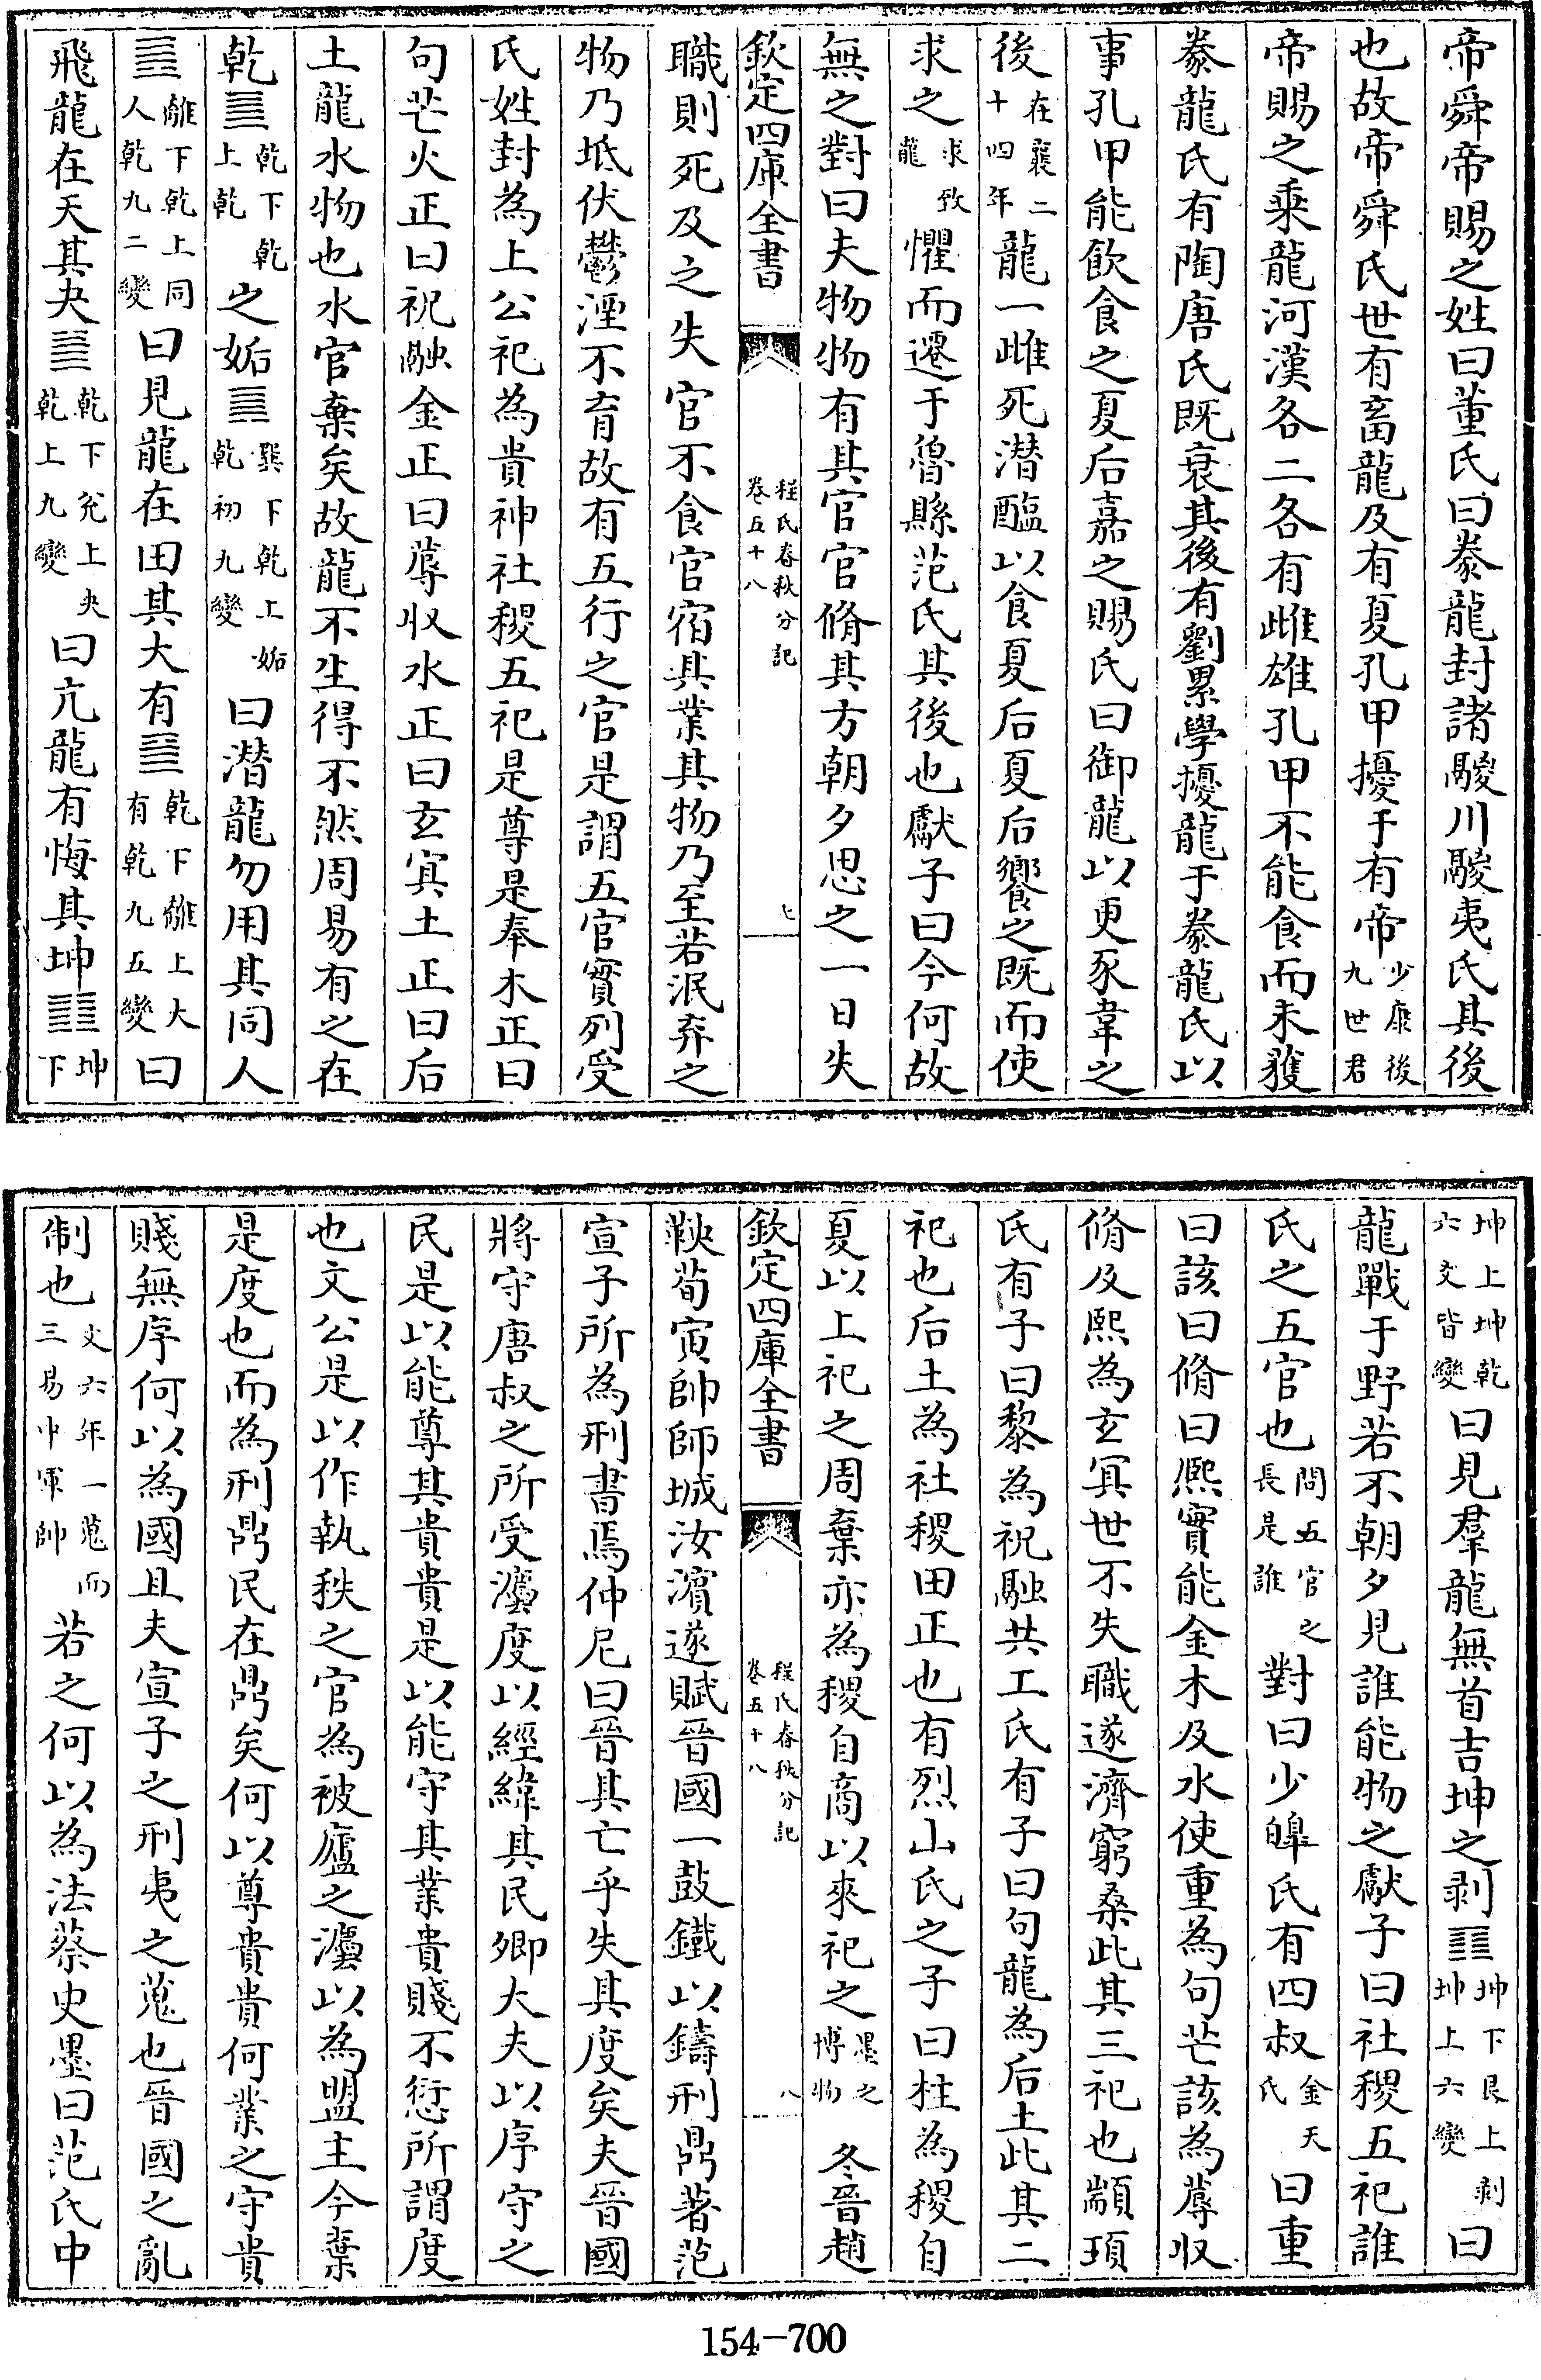 帝舜帝賜之姓曰董氏曰豢龍封諸鬷川鬷夷氏其後
也故帝舜氏世有畜龍及有夏孔甲擾于有帝少康後九世君
帝賜之乘龍河漢各二各有雌雄孔甲不能食而未獲
豢龍氏有陶唐氏既衰其後有劉累學擾龍于豢龍氏以
事孔甲能飲食之夏后嘉之賜氏曰御龍以更豕韋之
後在襄二十四年龍一雌死潛醢以食夏后夏后饗之既而使
求之求致龍懼而遷于魯縣范氏其後也獻子曰今何故
無之對曰夫物物有其官官脩其方朝夕思之一日失
欽定四庫全書 程氏春秋分記卷五十八 七
職則死及之失官不食官宿其業其物乃至若泯弃之
物乃坻伏鬱湮不育故有五行之官是謂五官實列受
氏姓封為上公祀為貴神社稷五祀是尊是奉木正曰
句芒火正曰祝融金正曰蓐收水正曰玄冥土正曰后
土龍水物也水官棄矣故龍不生得不然周易有之在
乾䷀乾下乾上乾之姤䷫巽下乾上姤乾初九變曰潛龍勿用其同人
䷌離下乾上同人乾九二變曰見龍在田其大有䷍乾下離上大有乾九五變曰
飛龍在天其夬䷪乾下兊上夬乾上九變曰亢龍有悔其坤䷁坤下
坤上坤乾六爻皆變曰見羣龍無首吉坤之剥䷖坤下艮上剥坤上六變曰
龍戰于野若不朝夕見誰能物之獻子曰社稷五祀誰
氏之五官也問五官之長是誰對曰少皞氏有四叔金天氏曰重
曰該曰脩曰熈實能金木及水使重為句芒該為蓐收
脩及熙為玄冥世不失職遂濟窮桑此其三祀也顓頊
氏有子曰黎為祝融共工氏有子曰句龍為后土此其二
祀也后土為社稷田正也有烈山氏之子曰柱為稷自
夏以上祀之周棄亦為稷自商以來祀之墨之博物 冬晉趙
欽定四庫全書 程氏春秋分記卷五十八 八
鞅荀寅帥師城汝濱遂賦晉國一鼓鐵以鑄刑鼎著范
宣子所為刑書焉仲尼曰晉其亡乎失其度矣夫晉國
將守唐叔之所受灋度以經緯其民卿大夫以序守之
民是以能尊其貴貴是以能守其業貴賤不愆所謂度
也文公是以作執秩之官為被廬之灋以為盟主今棄
是度也而為刑鼎民在鼎矣何以尊貴貴何業之守貴
賤無序何以為國且夫宣子之刑夷之蒐也晉國之亂
制也文六年一蒐而三易中軍帥若之何以為法蔡史墨曰范氏中
154-700